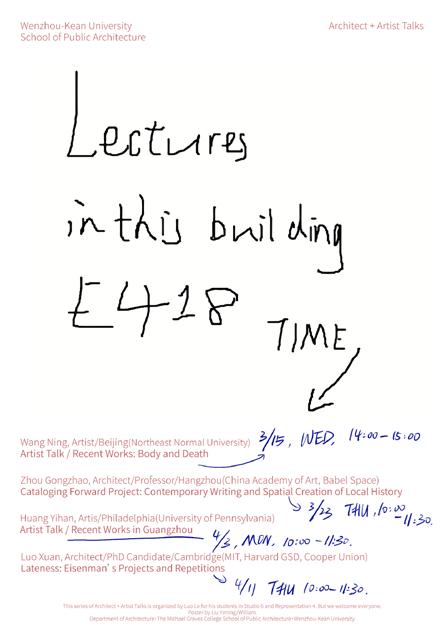 Wenzhou-Kean University
School of Public Architecture
Architect + Artist Talks
Lectures
in this building
E418
TIME
Wang Ning, Artist/Beijing(Northeast Normal University)
3/15, WED, 14:00-15:00
Artist Talk / Recent Works: Body and Death
Zhou Gongzhao, Architect/Professor/Hangzhou(China Academy of Art, Babel Space)
Cataloging Forward Project: Contemporary Writing and Spatial Creation of Local History
3/23 THU, 10:00-11:30.
Huang Yihan, Artis/Philadelphia(University of Pennsylvania)
Artist Talk / Recent Works in Guangzhou
4/3, MON, 10:00-11:30.
Luo Xuan, Architect/PhD Candidate/Cambridge(MIT, Harvard GSD, Cooper Union)
Lateness: Eisenman's Projects and Repetitions
4/11 THU 10:00-11:30.
This series of Architect + Artist Talks is organized by Luo Le for his students in Studio 6 and Representation 4. But we welcome everyone.
Poster by Liu Yiming/William.
Department of Architecture-The Michael Graves College School of Public Architecture-Wenzhou-Kean University